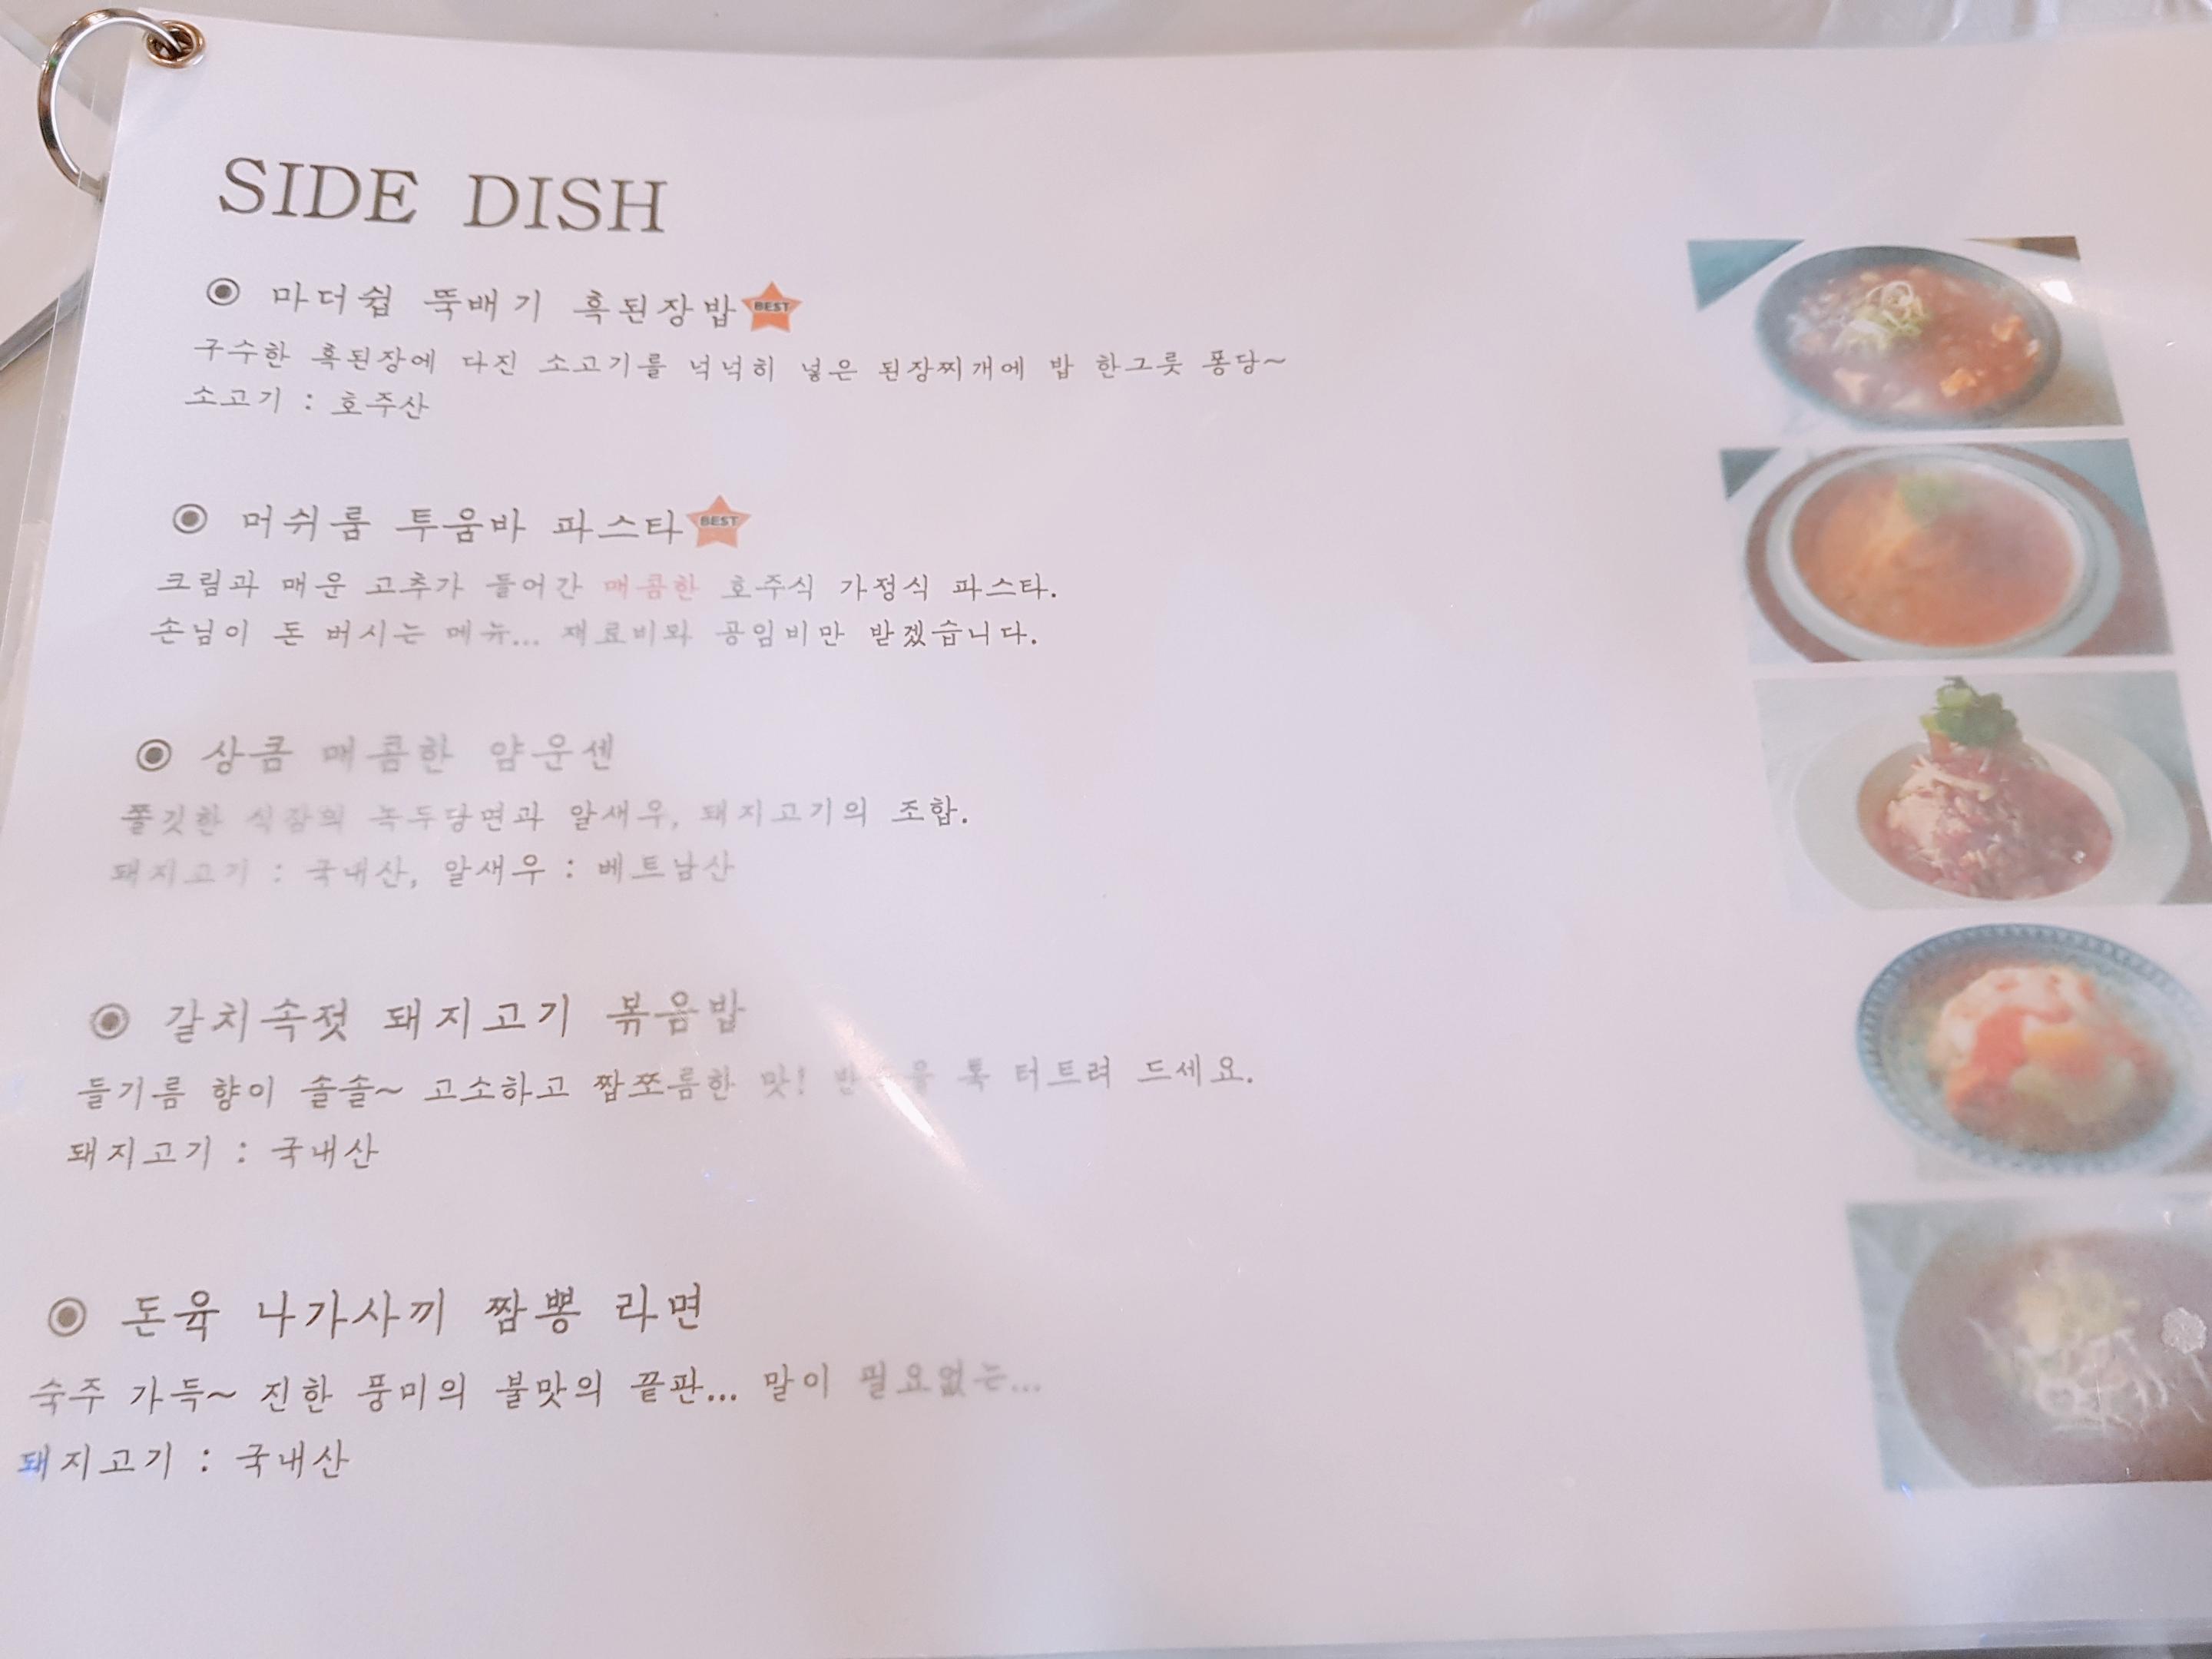 SIDE DISH
마더쉽 뚝배기 흑된장밥 BEST
구수한 흑된장에 다진 소고기를 넉넉히 넣은 된장찌개에 밥 한그릇 퐁당~
소고기 : 호주산
머쉬룸 투움바 파스타 BEST
크림과 매운 고추가 들어간 매콤한 호주식 가정식 파스타.
손님이 돈 버시는 메뉴... 재료비와 공임비만 받겠습니다.
상콤 매콤한 얌운센
쫄깃한 식감의 녹두당면과 알새우, 돼지고기의 조합.
돼지고기 : 국내산, 알새우 : 베트남산
갈치속젓 돼지고기 볶음밥
들기름 향이 솔솔~ 고소하고 짭쪼름한 맛! 톡 터트려 드세요.
돼지고기 : 국내산
돈육 나가사끼 짬뽕 라면
숙주 가득~ 진한 풍미의 불맛의 끝판... 말이 필요없는...
돼지고기 : 국내산